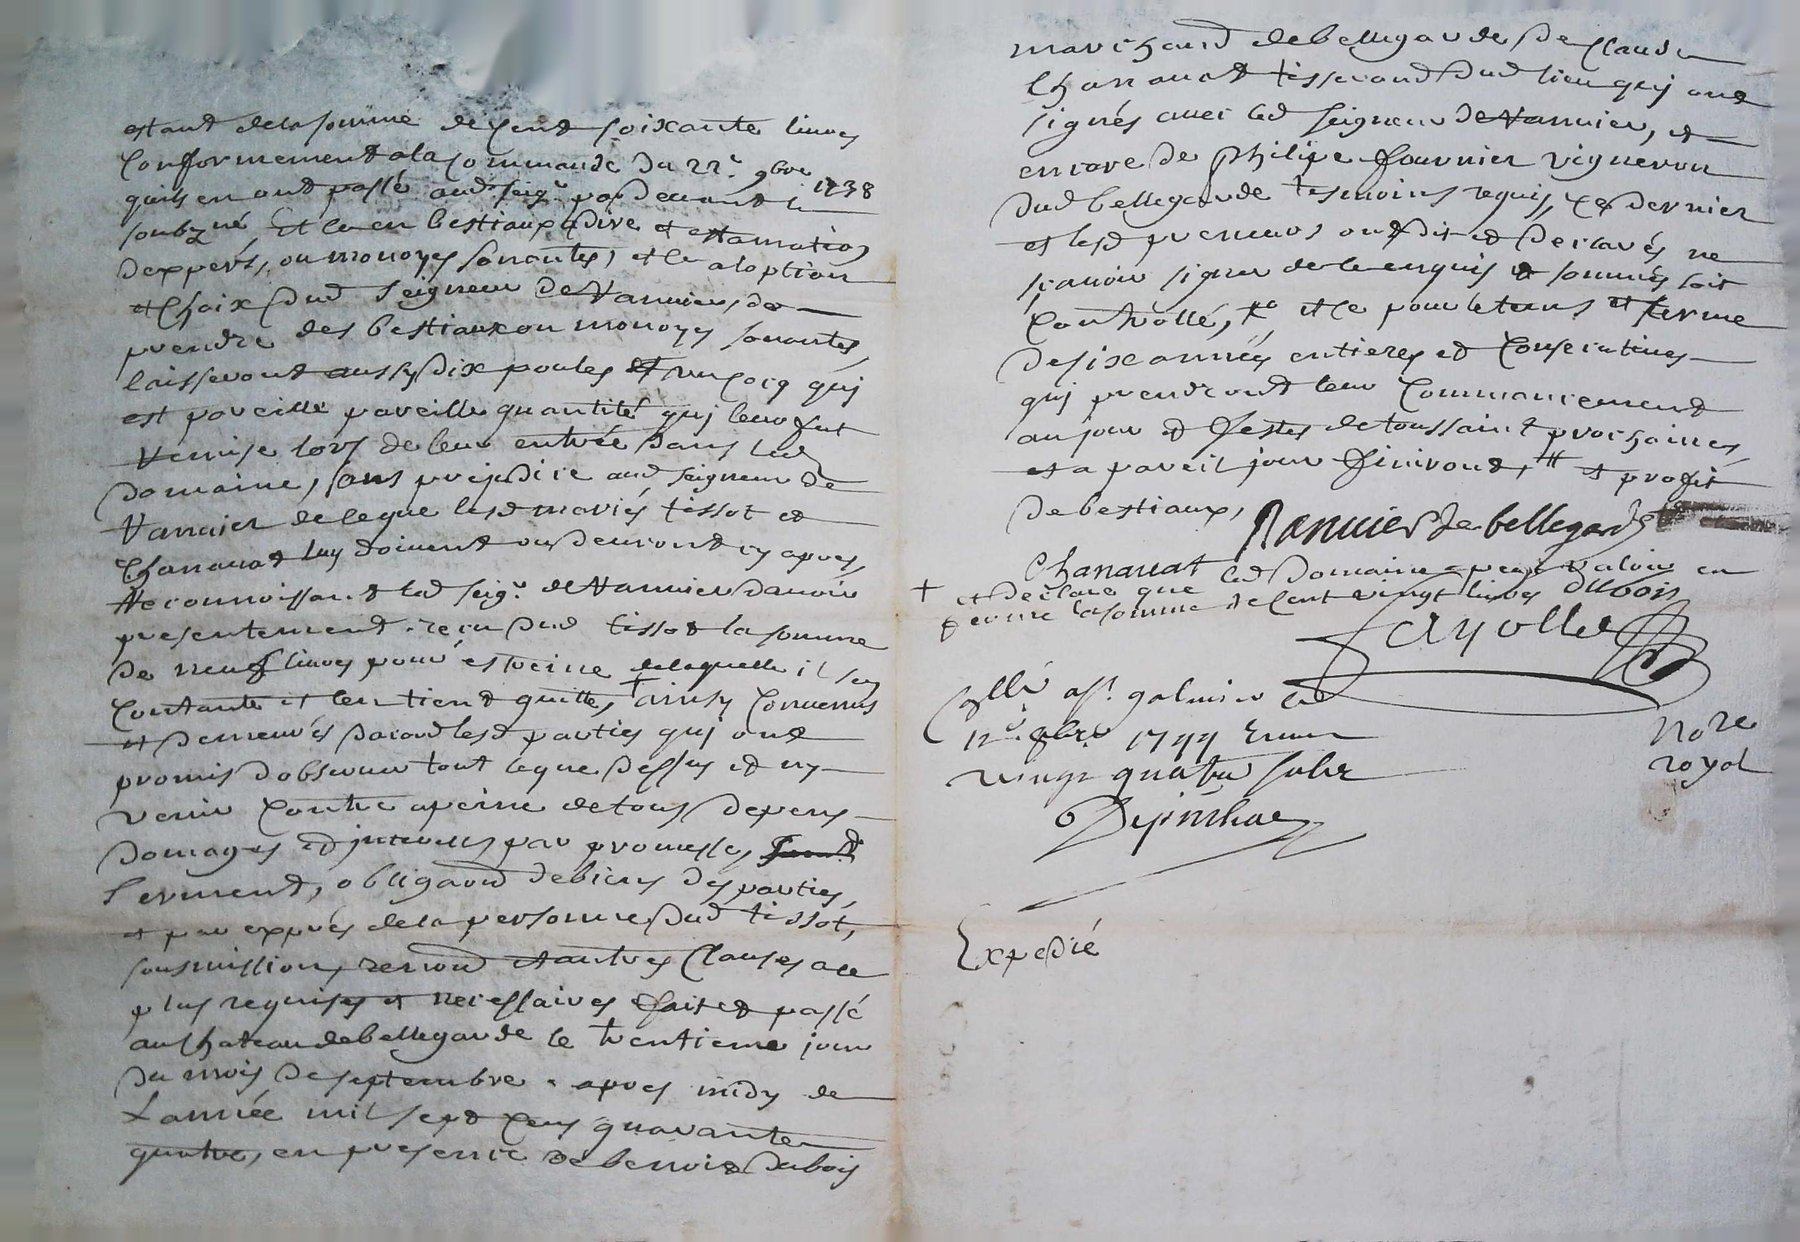 estant de la somme de Cent soixante livres
Conformement a la Commande du 22e. 9bre 1738
quils en ont passé aud. seigr. pardevant le
soubzné, Et ce en bestiaux a dire et estamation
dexperts, ou monoyes sonantes, et ce a loption
et Choix dud seigneur de Vannier, de
prendre des bestiaux ou monoyes sonantes,
laisseront aussy dix poules et un Cocq qui
est pareille pareille quantité qui leur fut
remise lors de leur entrée dans led
domaine, sans prejudice aud seigneur de
Vannier de ce que lesd mariés tissot et
Chanavat luy doivent ou devront cy apres,
Reconnoissant led seigr. de Vannier davoir
presentement reçu dud tissot la somme
de neuf livres pour estreine de laquelle il sen
Contante et len tient quitte, + ainsy Convenus
et demeurés daccord lesd parties qui ont
promis dobserver tout ce que dessus et ny
venir Contre a peine de tous depens
domages et interests par promesses
serment, obligaond de biens des parties,
et par exprés de la personne dud tissot,
sousmission, renond et autres Clauses a ce
plus requises et necessaires fait et passé
au Chateau de bellegarde le trentieme jour
du mois de septembre apres midy de
Lannée mil sept Cens quarante
quatre, en presence de benoist dubois
marchand de bellegarde de Claude
Chanavat tisserand dud lieu qui ont
signés avec led seigneur de Vannier, et
encore de philipe fournier vigneron
dud bellegarde tesmoins requis, Ce dernier
et lesd preneurs ont dit et declarés ne
scavoir signer de ce enquis et sommés soit
Controllé, et ce pour le tems et terme
de six années entieres et Consecutives
qui prendront leur Commancement
au jour et festes de toussaint prochaines,
et a pareil jour finiront, # et profit
de bestiaux,
Vannier de bellegarde
Chanavat
dubois
+ et declare que led domaine peut valoir en
ferme la somme de Cent vingt livres
Ayolle
Nore
royal
Collé a St. galmier le
12e. 8bre 1744 Reçu
vingt quatre sols
Expedié